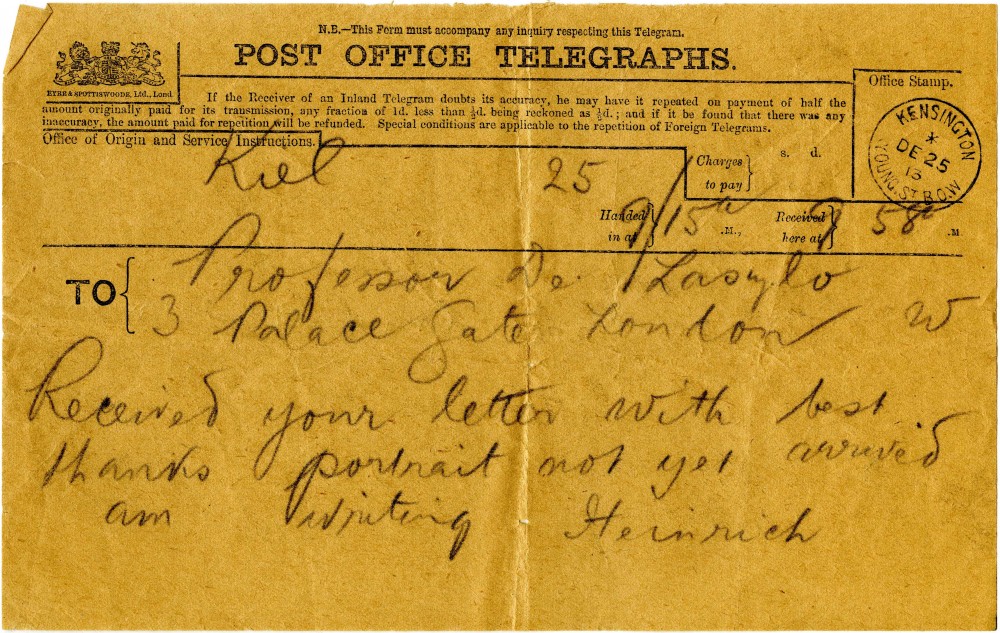 N.B.—This Form must accompany any inquiry respecting this Telegram.
POST OFFICE TELEGRAPHS.
EYRE & SPOTTISWOODE, Ltd., Lond.
If the Receiver of an Inland Telegram doubts its accuracy, he may have it repeated on payment of half the
amount originally paid for its transmission, any fraction of 1d. less than ½d. being reckoned as ½d.; and if it be found that there was any
inaccuracy, the amount paid for repetition will be refunded. Special conditions are applicable to the repetition of Foreign Telegrams.
Office of Origin and Service Instructions.
Office Stamp.
KENSINGTON
DE 25
13
YOUNG. ST. B.O.W
Kiel 25
Charges to pay
s. d.
Handed in at 9/15 a .M.,
Received here at 9 58a .M.
TO
Professor De Laszlo
3 Palace Gate London W
Received your letter with best
thanks portrait not yet arrived
am writing Heinrich